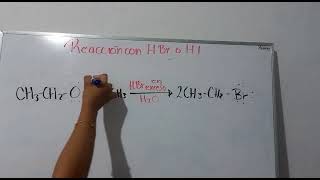 Reacción con HBr o HI
CH₃-CH₂ O H₃ HBr en exceso H₂O 2CH₃-CH₂-Br